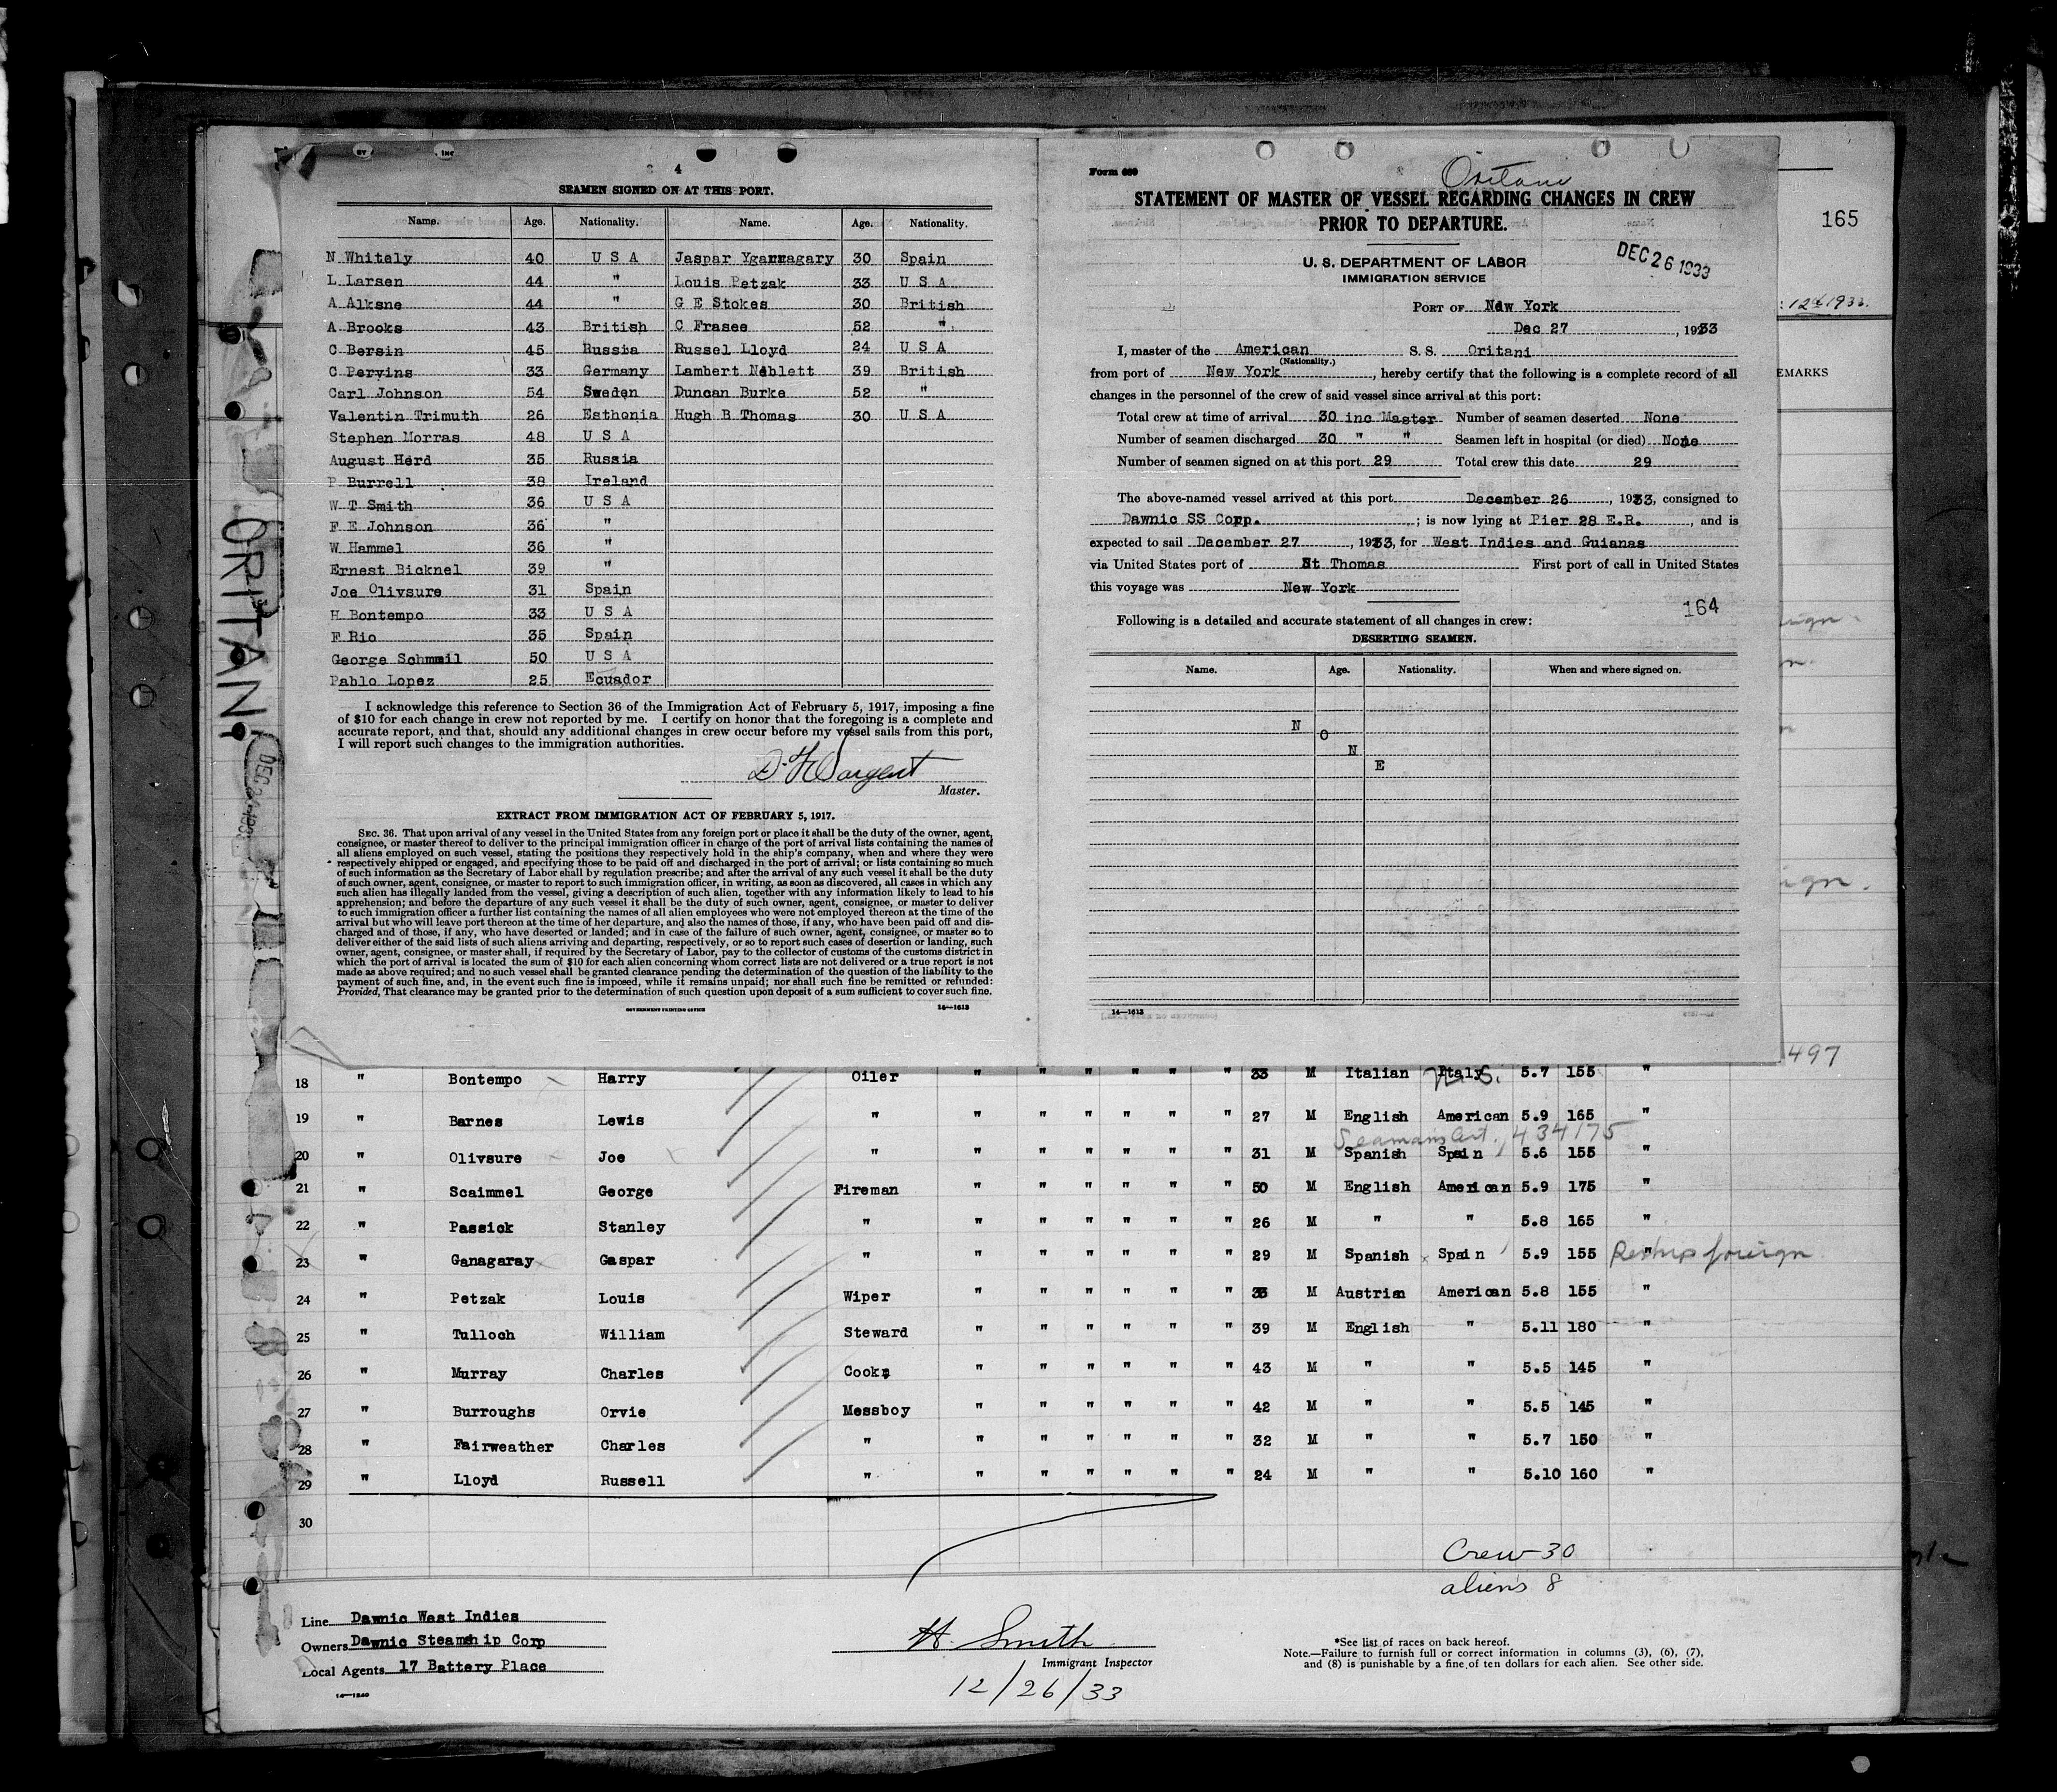 4
SEAMEN SIGNED ON AT THIS PORT.
Name. Age. Nationality. Name. Age. Nationality.
N Whitely 40 U S A Jaspar Ygarragary 30 Spain
L Larsen 44 " Louis Petzak 33 U S A
A Alksne 44 " G E Stokes 30 British
A Brooks 43 British C Frasee 52 "
C Bersin 45 Russia Russel Lloyd 24 U S A
C Pervins 33 Germany Lambert Neblett 39 British
Carl Johnson 54 Sweden Duncan Burke 52 "
Valentin Trimuth 26 Esthonia Hugh B Thomas 30 U S A
Stephen Morras 48 U S A
August Herd 35 Russia
P Burrell 38 Ireland
W T Smith 36 U S A
F E Johnson 36 "
W Hammel 36 "
Ernest Bicknel 39 "
Joe Olivsure 31 Spain
H Bontempo 33 U S A
F Rio 35 Spain
George Schmmil 50 U S A
Pablo Lopez 25 Ecuador
I acknowledge this reference to Section 36 of the Immigration Act of February 5, 1917, imposing a fine
of $10 for each change in crew not reported by me. I certify on honor that the foregoing is a complete and
accurate report, and that, should any additional changes in crew occur before my vessel sails from this port,
I will report such changes to the immigration authorities.
Sargent
Master.
EXTRACT FROM IMMIGRATION ACT OF FEBRUARY 5, 1917.
SEC. 36. That upon arrival of any vessel in the United States from any foreign port or place it shall be the duty of the owner, agent,
consignee, or master thereof to deliver to the principal immigration officer in charge of the port of arrival lists containing the names of
all aliens employed on such vessel, stating the positions they respectively hold in the ship's company, when and where they were
respectively shipped or engaged, and specifying those to be paid off and discharged in the port of arrival; or lists containing so much
of such information as the Secretary of Labor shall by regulation prescribe; and after the arrival of any such vessel it shall be the duty
of such owner, agent, consignee, or master to report to such immigration officer, in writing, as soon as discovered, all cases in which any
such alien has illegally landed from the vessel, giving a description of such alien, together with any information likely to lead to his
apprehension; and before the departure of any such vessel it shall be the duty of such owner, agent, consignee, or master to deliver
to such immigration officer a further list containing the names of all alien employees who were not employed thereon at the time of the
arrival but who will leave port thereon at the time of her departure, and also the names of those, if any, who have been paid off and dis-
charged and of those, if any, who have deserted or landed; and in case of the failure of such owner, agent, consignee, or master so to
deliver either of the said lists of such aliens arriving and departing, respectively, or so to report such cases of desertion or landing, such
owner, agent, consignee, or master shall, if required by the Secretary of Labor, pay to the collector of customs of the customs district in
which the port of arrival is located the sum of $10 for each alien concerning whom correct lists are not delivered or a true report is not
made as above required; and no such vessel shall be granted clearance pending the determination of the question of the liability to the
payment of such fine, and, in the event such fine is imposed, while it remains unpaid; nor shall such fine be remitted or refunded:
Provided, That clearance may be granted prior to the determination of such question upon deposit of a sum sufficient to cover such fine.
GOVERNMENT PRINTING OFFICE 14—1613
ORITANI
Form 689
Oritani
STATEMENT OF MASTER OF VESSEL REGARDING CHANGES IN CREW
PRIOR TO DEPARTURE.
DEC 26 1933
U. S. DEPARTMENT OF LABOR
IMMIGRATION SERVICE
PORT OF New York
Dec 27, 1933
I, master of the American S. S. Oritani
(Nationality.)
from port of New York, hereby certify that the following is a complete record of all
changes in the personnel of the crew of said vessel since arrival at this port:
Total crew at time of arrival 30 inc Master Number of seamen deserted None
Number of seamen discharged 30 " " Seamen left in hospital (or died) None
Number of seamen signed on at this port 29 Total crew this date 29
The above-named vessel arrived at this port December 26, 1933, consigned to
Dawnic SS Copp. ; is now lying at Pier 28 E.R., and is
expected to sail December 27, 1933, for West Indies and Guianas
via United States port of St Thomas First port of call in United States
this voyage was New York
164
Following is a detailed and accurate statement of all changes in crew:
DESERTING SEAMEN.
Name. Age. Nationality. When and where signed on.
N
O
N
E
14—1613
165
12th 1933.
EMARKS
497
18 " Bontempo Harry Oiler " " " " " " 33 M Italian Italy U.S. 5.7 155 "
19 " Barnes Lewis " " " " " " " 27 M English American 5.9 165 "
Seamans Cert. 434175
20 " Olivsure Joe " " " " " " " 31 M Spanish Spain 5.6 155 "
21 " Scaimmel George Fireman " " " " " " 50 M English American 5.9 175 "
22 " Passick Stanley " " " " " " " 26 M " " 5.8 165 "
23 " Ganagaray Gaspar " " " " " " " 29 M Spanish Spain 5.9 155 " Reship foreign
24 " Petzak Louis Wiper " " " " " " 33 M Austrian American 5.8 155 "
25 " Tulloch William Steward " " " " " " 39 M English " 5.11 180 "
26 " Murray Charles Cook " " " " " " 43 M " " 5.5 145 "
27 " Burroughs Orvie Messboy " " " " " " 42 M " " 5.5 145 "
28 " Fairweather Charles " " " " " " " 32 M " " 5.7 150 "
29 " Lloyd Russell " " " " " " " 24 M " " 5.10 160 "
30
Crew 30
aliens 8
Line Dawnic West Indies
Owners Dawnic Steamship Corp
Local Agents 17 Battery Place
14—1240
H. Smith
Immigrant Inspector
12/26/33
*See list of races on back hereof.
Note.—Failure to furnish full or correct information in columns (3), (6), (7),
and (8) is punishable by a fine of ten dollars for each alien. See other side.